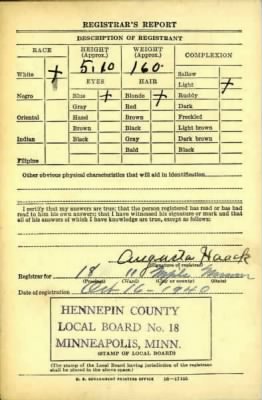 REGISTRAR'S REPORT
DESCRIPTION OF REGISTRANT
RACE HEIGHT (Approx.) WEIGHT (Approx.) COMPLEXION
5.10 160
Sallow
White EYES HAIR Light
Negro Blue Blonde Ruddy
Gray Red Dark
Oriental Hazel Brown Freckled
Brown Black Light brown
Indian Black Gray Dark brown
Bald Black
Filipino
Other obvious physical characteristics that will aid in identification
I certify that my answers are true; that the person registered has read or has had
read to him his own answers; that I have witnessed his signature or mark and that
all of his answers of which I have knowledge are true, except as follows:
Augusta Haack
(Signature of registrar)
Registrar for 18 Mpls
(Precinct) (Ward) (City or county) (State)
Date of registration Oct 16-1940
HENNEPIN COUNTY
LOCAL BOARD No. 18
MINNEAPOLIS, MINN.
(STAMP OF LOCAL BOARD)
(The stamp of the Local Board having jurisdiction of the registrant
shall be placed in the above space.)
U. S. GOVERNMENT PRINTING OFFICE 16-17105